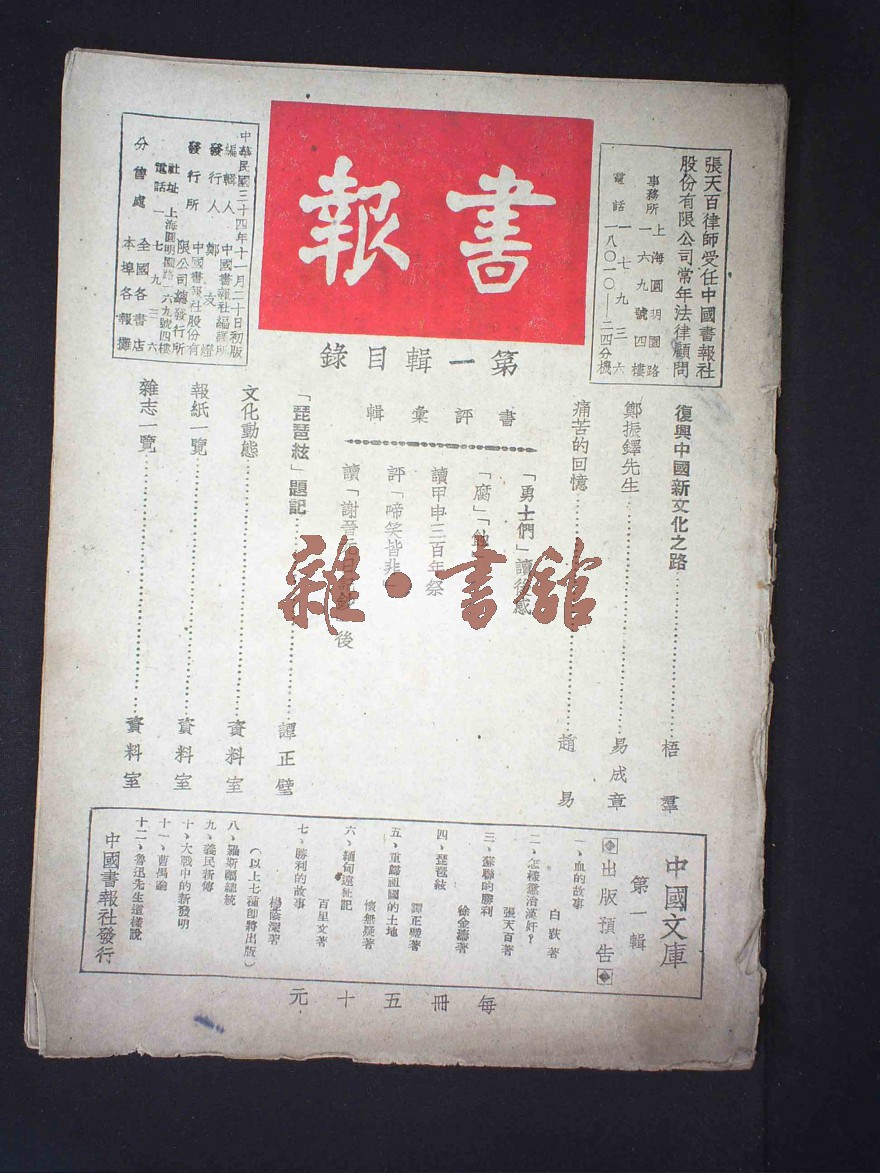 張天百律師受任中國書報社
股份有限公司常年法律顧問
事務所 上海圓明園路
一六九號四樓
電話 一七九三六
一八〇一〇—二四分機
書報
中華民國三十四年十一月二十日初版
編輯人 中國書報社編譯所
發行人 鄭支證
發行所 中國書報社股份有
限公司總發行所
社址 上海圓明園路一六九號四樓
電話 一七九三六
分售處 全國各書店
本埠各報攤
第一輯目錄
復興中國新文化之路 梧羣
鄭振鐸先生 易成章
痛苦的回憶 趙易
書評彙輯
「勇士們」讀後感
「腐」「蝕」
讀甲申三百年祭
評「啼笑皆非」
讀「謝晉元日記鈔」後
「琵琶絃」題記 譚正璧
文化動態 資料室
報紙一覽 資料室
雜志一覽 資料室
雜·書舘
中國文庫
第一輯
出版預告
一、血的故事 白荻著
二、怎樣懲治漢奸? 張天百著
三、蘇聯的勝利 徐金濤著
四、琵琶絃 譚正璧著
五、重歸祖國的土地 懷無疑著
六、緬甸遠征記 百里文著
七、勝利的故事 楊蔭深著
(以上七種即將出版)
八、羅斯福總統
九、義民新傳
十、大戰中的新發明
十一、曹禺論
十二、魯迅先生這樣說
中國書報社發行
每冊五十元